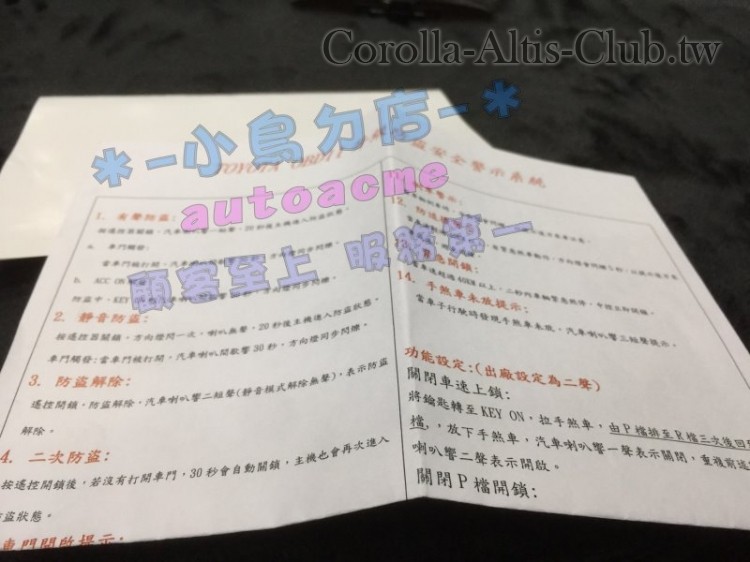 Corolla-Altis-Club.tw
*-小鳥勿店-*
autoacme
顧客至上 服務第一
TOYOTA OBDII
安全警示系統
1. 有聲防盜:
按遙控器關鎖,汽車喇叭響一短聲,20秒後主機進入防盜狀態。
a. 車門觸發:
當車門被打開,汽車喇叭
方向燈同步閃爍。
b. ACC ON
防盜中,KEY
方向燈同步閃爍。
2. 靜音防盜:
按遙控器關鎖,方向燈閃一次,喇叭無聲,20秒後主機進入防盜狀態。
車門觸發:當車門被打開,汽車喇叭間歇響30秒,方向燈同步閃爍。
3. 防盜解除:
遙控開鎖,防盜解除,汽車喇叭響二短聲(靜音模式解除無聲),表示防盜
解除。
4. 二次防盜:
按遙控開鎖後,若沒有打開車門,30秒會自動關鎖,主機也會再次進入
防盜狀態。
車門開啟提示:
12. 防追撞
開鎖:
14. 手煞車未放提示:
當車子行駛時發現手煞車未放,汽車喇叭響三短聲提示。
功能設定:(出廠設定為二聲)
關閉車速上鎖:
將鑰匙轉至KEY ON,拉手煞車,由P檔排至R檔三次後回
檔,,放下手煞車,汽車喇叭響一聲表示關閉,重複前述
喇叭響二聲表示開啟。
關閉P檔開鎖: